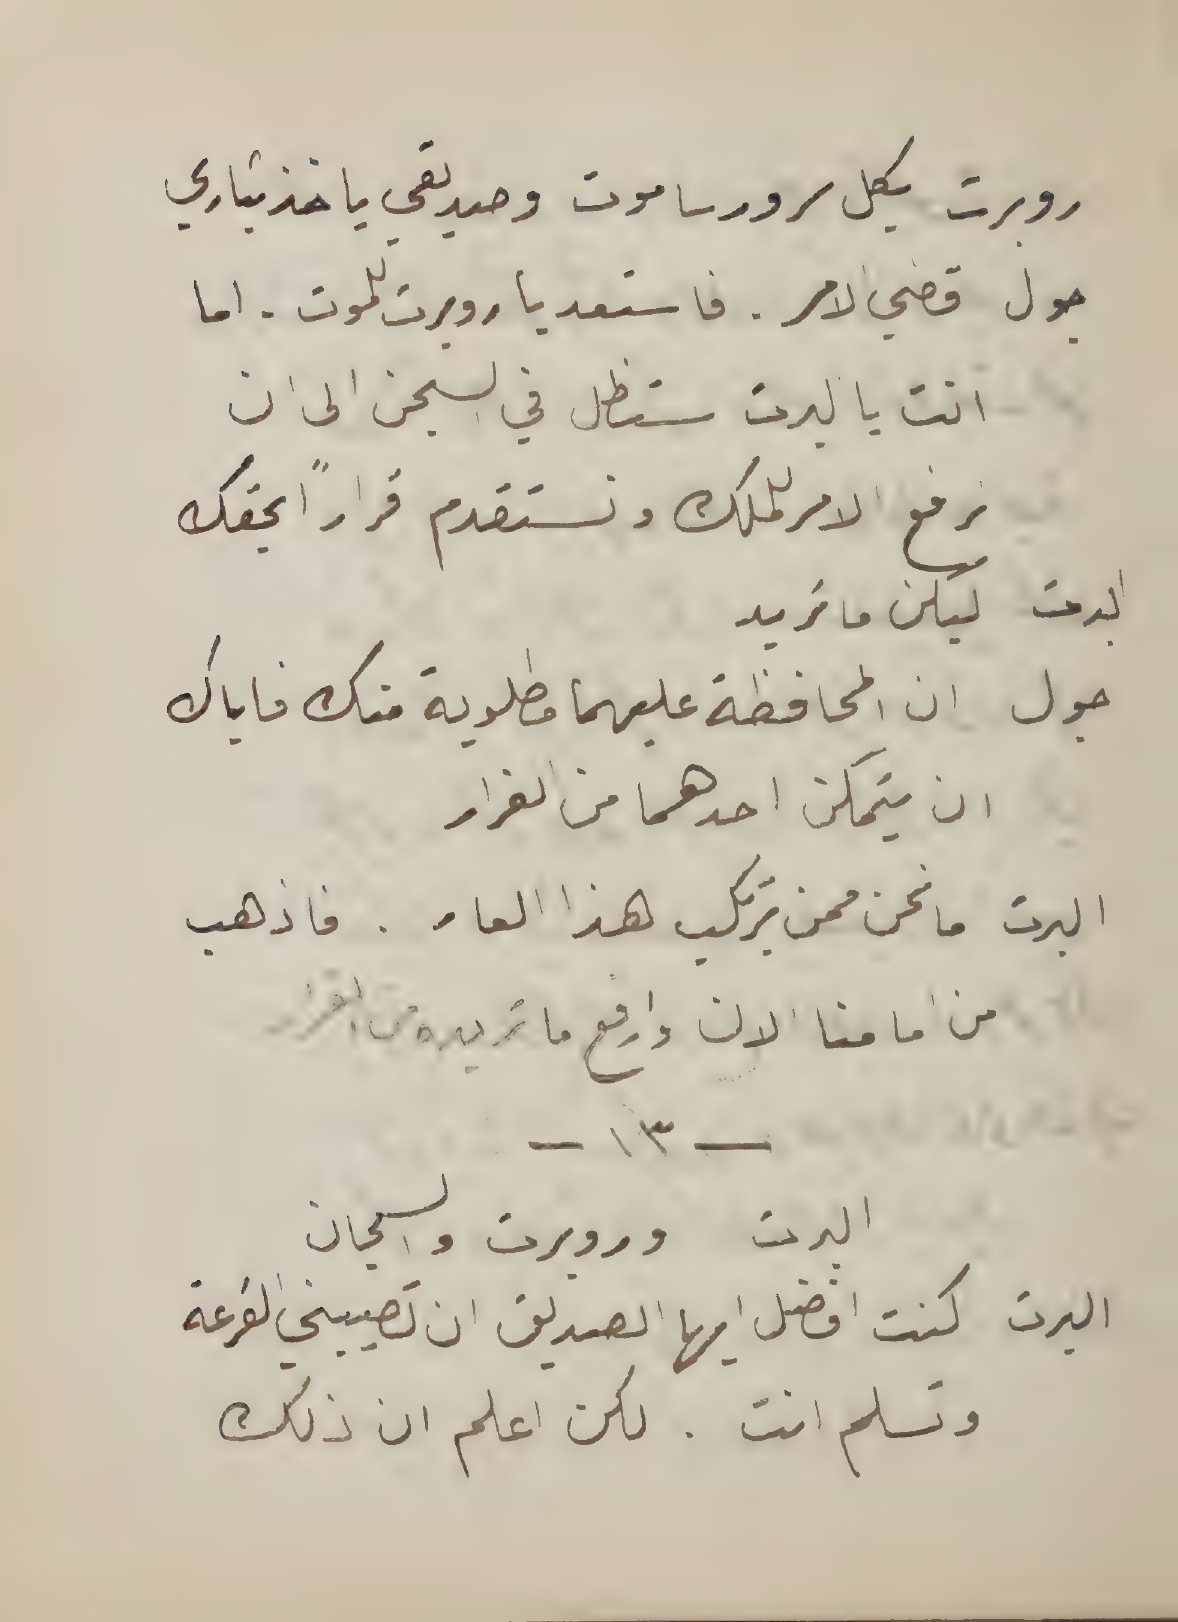 روبرت بكل سرور ساموت وصديقي ياخذ بثاري
جول قضي الامر . فاستعد يا روبرت للموت . اما
انت يا البرت ستظل في السجن الى ان
نرفع الامر للملك ونستقدم قراراً بحقك
البرت ليكن ما تريد
جول ان المحافظة عليهما مطلوبة منك فاياك
ان يتمكن احدهما من الفرار
البرت ما نحن ممن يرتكب هذا العار . فاذهب
من امامنا الان وارفع ما تريده من
— ١٣ —
البرت وروبرت والسجان
البرت كنت افضل ايها الصديق ان تصيبني القرعة
وتسلم انت . لكن اعلم ان ذلك